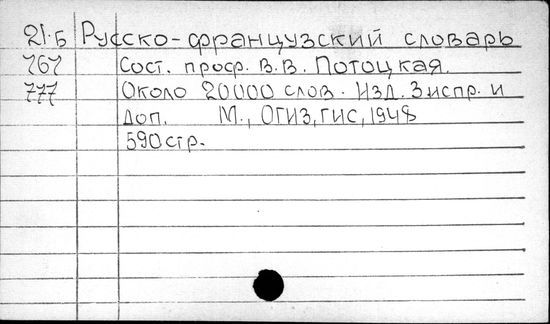 21.Б Русско-французский словарь
767 Сост. проф. В.В. Потоцкая.
777 Около 20000 слов. Изд. 3 испр. и
доп. М., ОГИЗ, ГИС, 1948
590 стр.